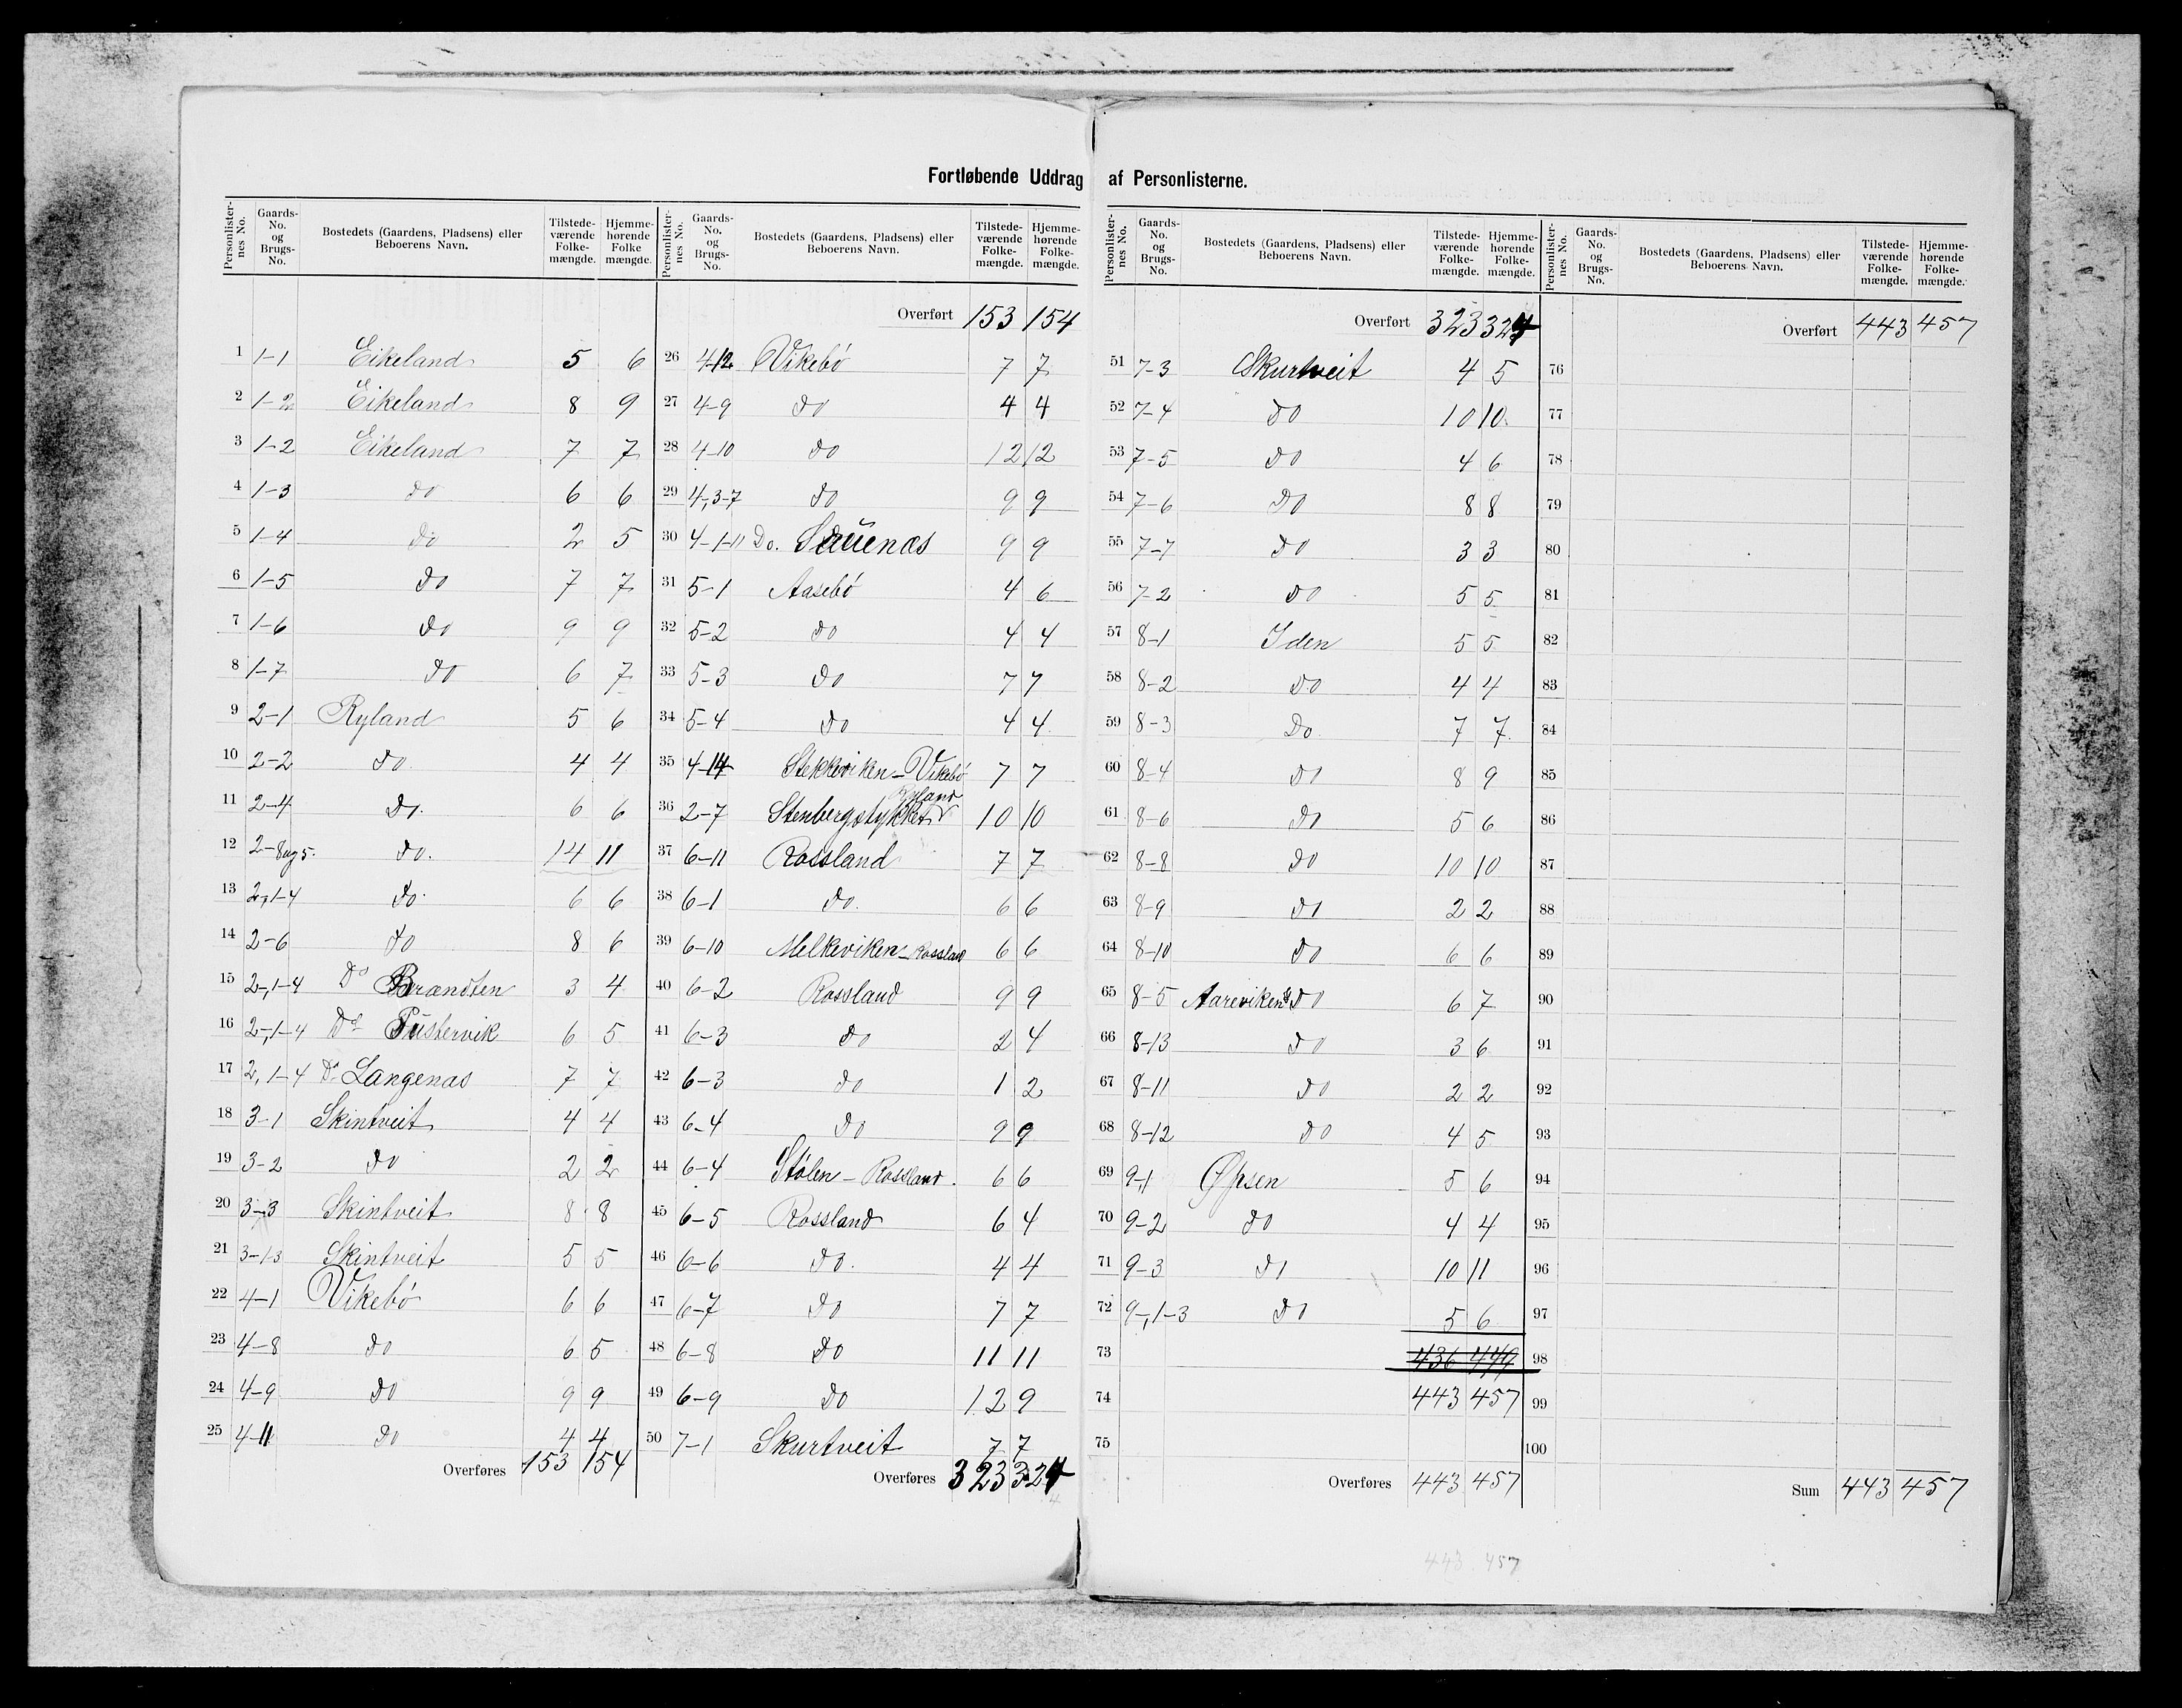 Fortløbende Uddrag af Personlisterne.
Personlister-nes No. Gaards-No. og Brugs-No. Bostedets (Gaardens, Pladsens) eller Beboerens Navn. Tilstede-værende Folke-mængde. Hjemme-hørende Folke mængde.
1 1-1 Eikeland 5 6
2 1-2 Eikeland 8 9
3 1-2 Eikeland 7 7
4 1-3 do 6 6
5 1-4 do 2 5
6 1-5 do 7 7
7 1-6 do 9 9
8 1-7 do 6 7
9 2-1 Ryland 5 6
10 2-2 do 4 4
11 2-4 do. 6 6
12 2-8og5. do. 14 11
13 2,1-4 do. 6 6
14 2-6 do 8 6
15 2-,1-4 Do Brandten 3 4
16 2-,1-4 Do Tustervik 6 5
17 2,1-4 Do Langenas 7 7
18 3-1 Skintveit 4 4
19 3-2 do 2 2
20 3-3 Skintveit 8 8
21 3-1-3 Skintveit 5 5
22 4-1 Vikebö 6 6
23 4-8 do 6 5
24 4-9 do 9 9
25 4-11 do 4 4
Overføres 153 154
Personlister-nes No. Gaards-No. og Brugs-No. Bostedets (Gaardens, Pladsens) eller Beboerens Navn. Tilstede-værende Folke-mængde. Hjemme-hørende Folke-mængde.
Overført 153 154
26 4-12 Vikebö 7 7
27 4-9 do 4 4
28 4-10 do 12 12
29 4-,3-7 do 9 9
30 4-1-11 Do. Sauenas 9 9
31 5-1 Aasebö 4 6
32 5-2 do 4 4
33 5-3 do 7 7
34 5-4 do 4 4
35 4-14 Stekkeviken-Vikebö 7 7
36 2-7 Stenbergstykket Ryland 10 10
37 6-11 Rossland 7 7
38 6-1 do. 6 6
39 6-10 Melkeviken-Rossland 6 6
40 6-2 Rossland 9 9
41 6-3 do 2 4
42 6-3 do 1 2
43 6-4 do 9 9
44 6-4 Stölen-Rossland. 6 6
45 6-5 Rossland 6 4
46 6-6 do. 4 4
47 6-7 do 7 7
48 6-8 do 11 11
49 6-9 do 12 9
50 7-1 Skurtveit 7 7
Overføres 323 324
Personlister-nes No. Gaards-No. og Brugs-No. Bostedets (Gaardens, Pladsens) eller Beboerens Navn. Tilstede-værende Folke-mængde. Hjemme-hørende Folke-mængde.
Overført 323 324
51 7-3 Skurtveit 4 5
52 7-4 do 10 10.
53 7-5 do 4 6
54 7-6 do 8 8
55 7-7 do 3 3
56 7-2 do 5 5
57 8-1 Iden 5 5
58 8-2 do 4 4
59 8-3 Do 7 7.
60 8-4 do 8 9
61 8-6 do 5 6
62 8-8 do 10 10
63 8-9 do 2 2
64 8-10 do 6 6
65 8-5 Aareviken do 6 7
66 8-13 do 3 6
67 8-11 do 2 2
68 8-12 do 4 5
69 9-,1 Øpsen 5 6
70 9-2 do 4 4
71 9-3 do 10 11
72 9-,1-3 do 5 6
73 436 449
74 443 457
75
Overføres 443 457
443. 457
Personlister-nes No. Gaards-No. og Brugs-No. Bostedets (Gaardens, Pladsens) eller Beboerens Navn. Tilstede-værende Folke-mængde. Hjemme-hørende Folke-mængde.
Overført 443 457
76
77
78
79
80
81
82
83
84
85
86
87
88
89
90
91
92
93
94
95
96
97
98
99
100
Sum 443 457